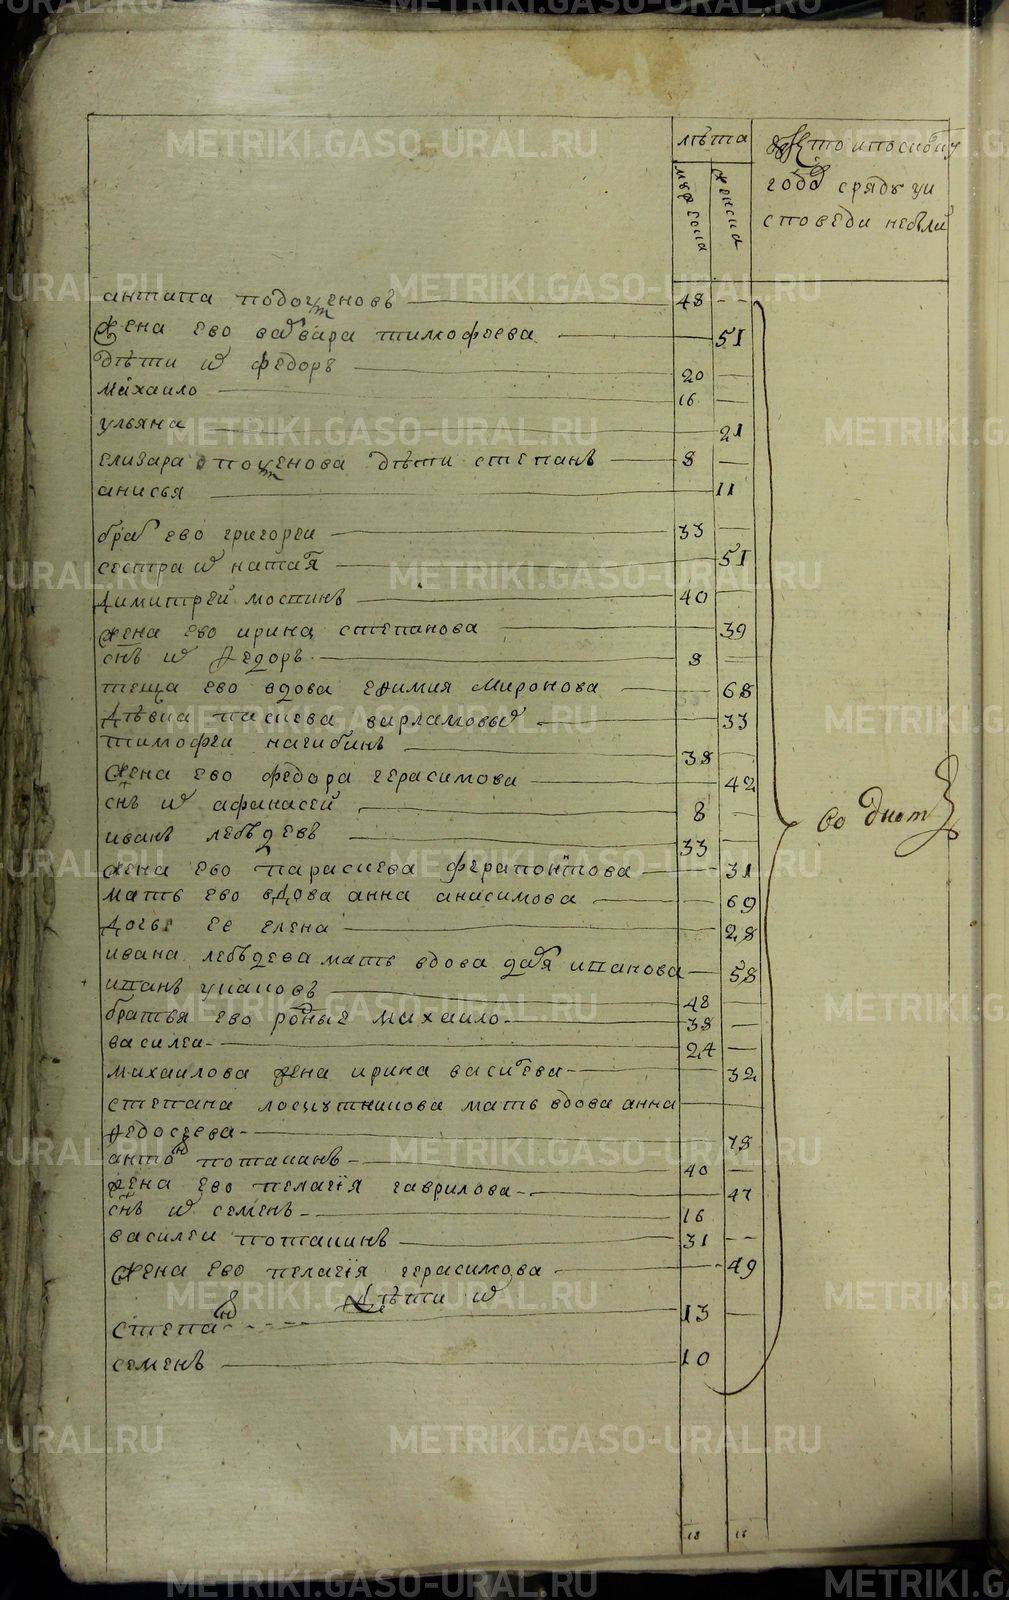 лѣта
мужеска
женска
кто и по скольку
года сряду у и
споведи не были
антипа подоменовъ 48
жена ево варвара тимофѣева 51
дѣти их федоръ 20
михаило 16
ульяна 21
елизара дѣти степанъ 8
анисья 11
братъ ево григореи 33
сестра их наталя 51
димитреи мостинъ 40
жена ево ирина степанова 39
снъ их федоръ 8
теща ево вдова ефимия миронова 68
дѣвка варламовых 33
тимофеи нагибинъ 38
жена ево федора герасимова 42
снъ их афанасеи 8
иванъ лебѣдевъ 33
жена ево параскева ферапонтова 31
мать ево вдова анна анисимова 69
дочь ее елена 28
ивана лебѣдева мать вдова дарья 58
48
братья ево родные михаило 38
василеи 24
михаилова жена ирина василева 32
степана мать вдова анна
федосѣева 78
антон потапинъ 40
жена ево пелагiя гаврилова 47
снъ их семенъ 16
василеи потапинъ 31
жена ево пелагiя герасимова 49
дѣти их
степан 13
семенъ 10
18 16
METRIKI.GASO-URAL.RU